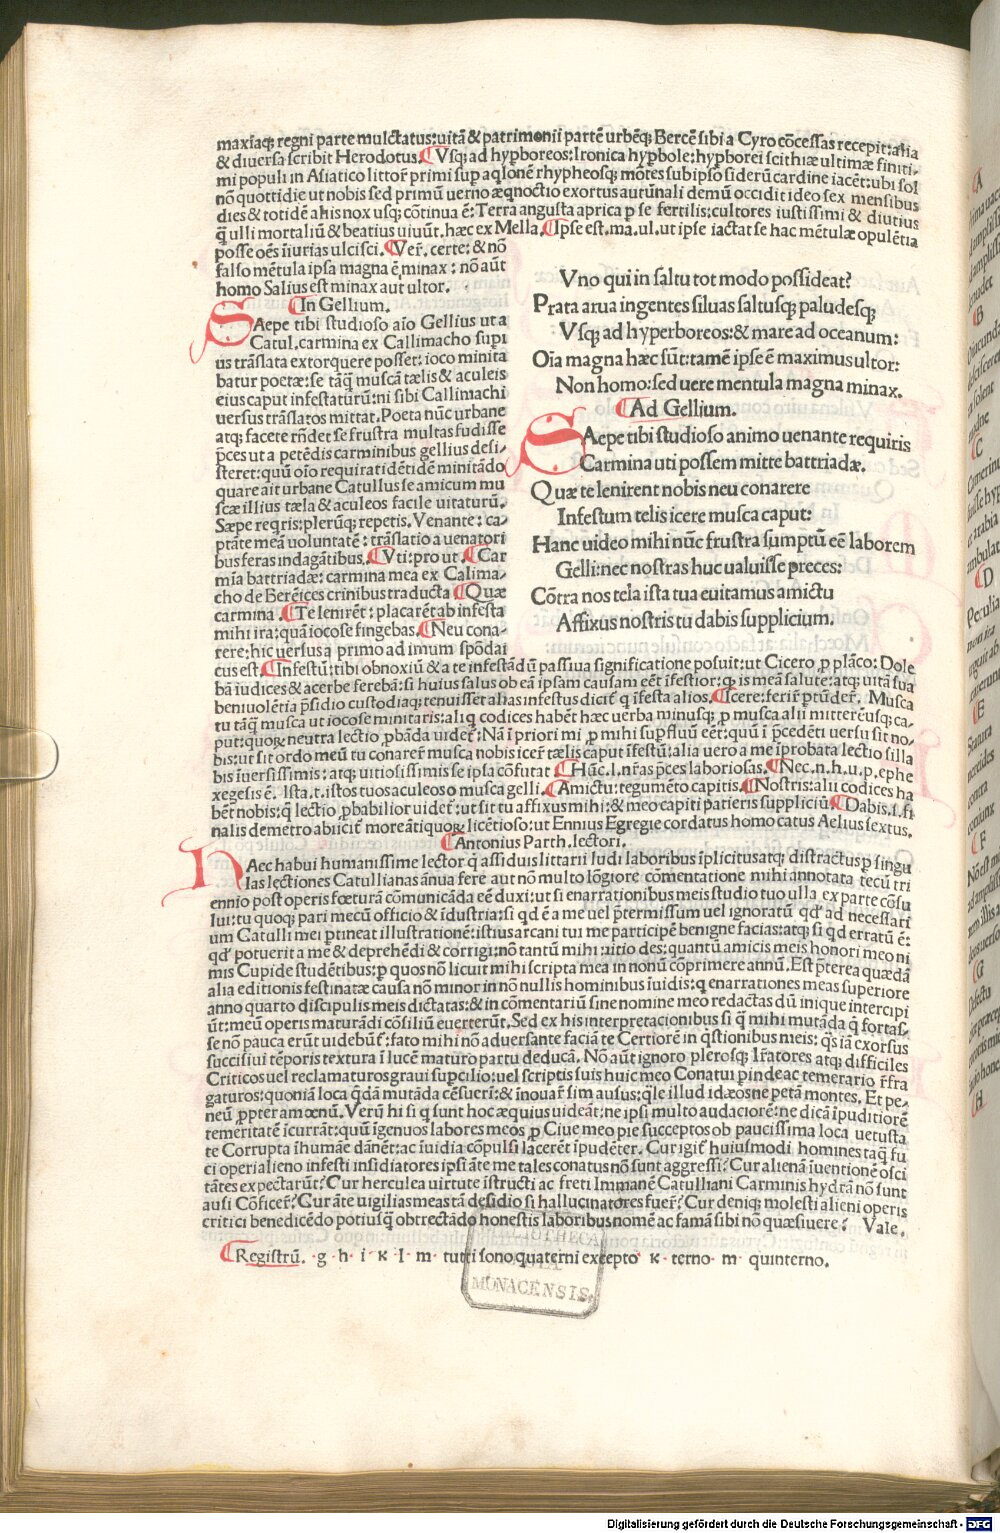 maxiaq; regni parte mulctatus: uitā & patrimonii partē urbēq; Bercē sibi a Cyro cōcessas recepit: alia
& diuersa scribit Herodotus. Vsq; ad hypboreos: Ironica hypbole: hypborei scithiæ ultimæ finiti-
mi populi in Asiatico littor̄ primi sup aqlonē rhypheosq; mōtes sub ipso siderū cardine iacēt: ubi sol
nō quottidie ut nobis sed primū uerno æqnoctio exortus autūnali demū occidit ideo sex mensibus
dies & totidē aliis nox usq; cōtinua ē: Terra angusta aprica p se fertilis: cultores iustissimi & diutius
q̄ ulli mortaliū & beatius uiuūt. hæc ex Mella. Ipse est. ma. ul. ut ipse iactat se hac mētulæ opulētia
posse oēs iīurias ulcisci. Ver̄. certe: & nō
falso mētula ipsa magna ē minax: nō aūt
homo Salius est minax aut ultor.
In Gellium.
SAepe tibi studioso aīo Gellius ut a
Catul. carmina ex Callimacho supi
us trāslata extorquere posset: ioco minita
batur poetæ: se tāq̄ muscā tælis & aculeis
eius caput infestaturū: ni sibi Callimachi
uersus trāslatos mittat. Poeta nūc urbane
atq; facete rn̄det se frustra multas fudisse
p̄ces ut a petēdis carminibus gellius desi-
steret: quū oīo requirat idētidē minitādo
quare ait urbane Catullus se amicum mu
scæ illius tæla & aculeos facile uitaturū.
Sæpe reqris: plerūq; repetis. Venante: ca-
ptāte meā voluntatē: trāslatio a uenatori
bus feras indagātibus. Vti: pro ut. Car
mīa battriadæ: carmina mea ex Calima-
cho de Berēices crinibus traducta Quæ
carmina. Te lenirēt: placarēt ab infesta
mihi ira: quā iocose fingebas. Neu cona-
rere: hic uersus a primo ad imum spōdai
cus est. Infestū: tibi obnoxiū & a te infestādū passiua significatione posuit: ut Cicero p plāco: Dole
bā iudices & acerbe ferebā: si huius salus ob eā ipsam causam eēt īfestior: q; is meā salutē: atq; uitā sua
beniuolētia p̄sidio custodiaq; tenuisset alias infestus dicit̄ q īfesta alios. Icere: ferir̄ ptūder̄. Musca
tu tāq̄ musca ut iocose minitaris: aliq codices habēt hæc uerba minusq; p musca alii mitterēusq; ca-
put: quoꝝ neutra lectio pbāda uidet̄: Nā ī priori mi p mihi supfluū eēt: quū ī p̄cedēti uersu sit no-
bis: ut sit ordo meū tu conarer̄ musca nobis icer̄ tælis caput īfestū: alia uero a me īprobata lectio silla
bis īuersissimis: atq; uitiosissimis se ipsa cōfutat Hūc. l. nr̄as p̄ces laboriosas. Nec. n. h. u. p. ephe
xegesis ē. Ista. t. istos tuos aculeos o musca gelli. Amictu: tegumēto capitis. Nostris: alii codices ha
bēt nobis: q̄ lectio pbabilior uidet̄: ut sit tu affixus mihi: & meo capiti patieris suppliciū. Dabis. s. fi
nalis demetro abiicit̄ more ātiquoꝝ licētioso: ut Ennius Egregie cordatus homo catus Aelius sextus.
Vno qui in saltu tot modo possideat?
Prata arua ingentes siluas saltusq; paludesq;
Vsq; ad hyperboreos: & mare ad oceanum:
Oīa magna hæc sūt: tamē ipse ē maximus ultor:
Non homo: sed uere mentula magna minax.
Ad Gellium.
SAepe tibi studioso animo uenante requiris
Carmina uti possem mitte battriadæ.
Quæ te lenirent nobis neu conarere
Infestum telis icere musca caput:
Hanc uideo mihi nūc frustra sumptū eē laborem
Gelli: nec nostras huc ualuisse preces:
Cōtra nos tela ista tua euitamus amictu
Affixus nostris tu dabis supplicium.
Antonius Parth. lectori.
HAec habui humanissime lector q̄ assiduis littarii ludi laboribus īplicitus atq; distractus p singu
las lectiones Catullianas ānua fere aut nō multo lōgiore cōmentatione mihi annotata tecū tri
ennio post operis fœturā cōmunicāda eē duxi: ut si enarrationibus meis studio tuo ulla ex parte cōsu
lui: tu quoq; pari mecū officio & īdustria: si qd ē a me uel p̄termissum uel ignoratū qd' ad necessari
um Catulli mei ptineat illustrationē: istius arcani tui me participē benigne facias: atq; si qd erratū ē:
qd' potuerit a me & deprehēdi & corrigi: nō tantū mihi uitio des: quantū amicis meis honori meo ni
mis Cupide studētibus: p quos nō licuit mihi scripta mea in nonū cōprimere annū. Est p̄terea quædā
alia editionis festinatæ causa nō minor in nō nullis hominibus īuidis: q enarrationes meas superiore
anno quarto discipulis meis dictatas: & in cōmentariū sine nomine meo redactas dū inique intercipi
ūt: meū operis maturādi cōsiliū euerterūt. Sed ex his interpretacionibus si q̄ mihi mutāda q̄ fortas-
se nō pauca erūt uidebūt̄: fato mihi nō aduersante faciā te Certiorē in q̄stionibus meis: q̄s iā exorsus
succisiui tēporis textura ī lucē maturo partu deducā. Nō aūt ignoro plerosq; lr̄atores atq; difficiles
Criticos uel reclamaturos graui supcilio: uel scriptis suis huic meo Conatui pindeac temerario r̄fra
gaturos: quoniā loca q̄dā mutāda cēsueri: & īnouar̄ sim ausus: q̄le illud idæos ne petā montes. Et pe-
neū ppter amœnū. Verū hi si q sunt hoc æquius uideāt: ne ipsi multo audaciorē: ne dicā ipuditiorē
temeritatē īcurrāt: quū īgenuos labores meos p Ciue meo pie succepto s ob paucissima loca uetusta
te Corrupta īhumāe dānēt: ac īuidia cōpulsi lacerēt ipudēter. Cur igit̄ huiusmodi homines taq̄ fu
ci operi alieno infesti insidiatores ipsi āte me tales conatus nō sunt aggressi? Cur alienā īuentionē osci
tātes expectarūt? Cur herculea uirtute īstructi ac freti Immanē Catulliani Carminis hydrā nō sunt
ausi Cōficer̄? Cur āte uigilias meas tā desidio si hallucinatores fuer̄? Cur deniq; molesti alieni operis
critici benedicēdo potiusq̄ obtrectādo honestis laboribus nomē ac famā sibi nō quæsiuere? Vale.
Registrū. g h i k l m tutti sono quaterni excepto k terno m quinterno.
BIBLIOTHECA
REGIA
MONACENSIS.
Digitalisierung gefördert durch die Deutsche Forschungsgemeinschaft - DFG